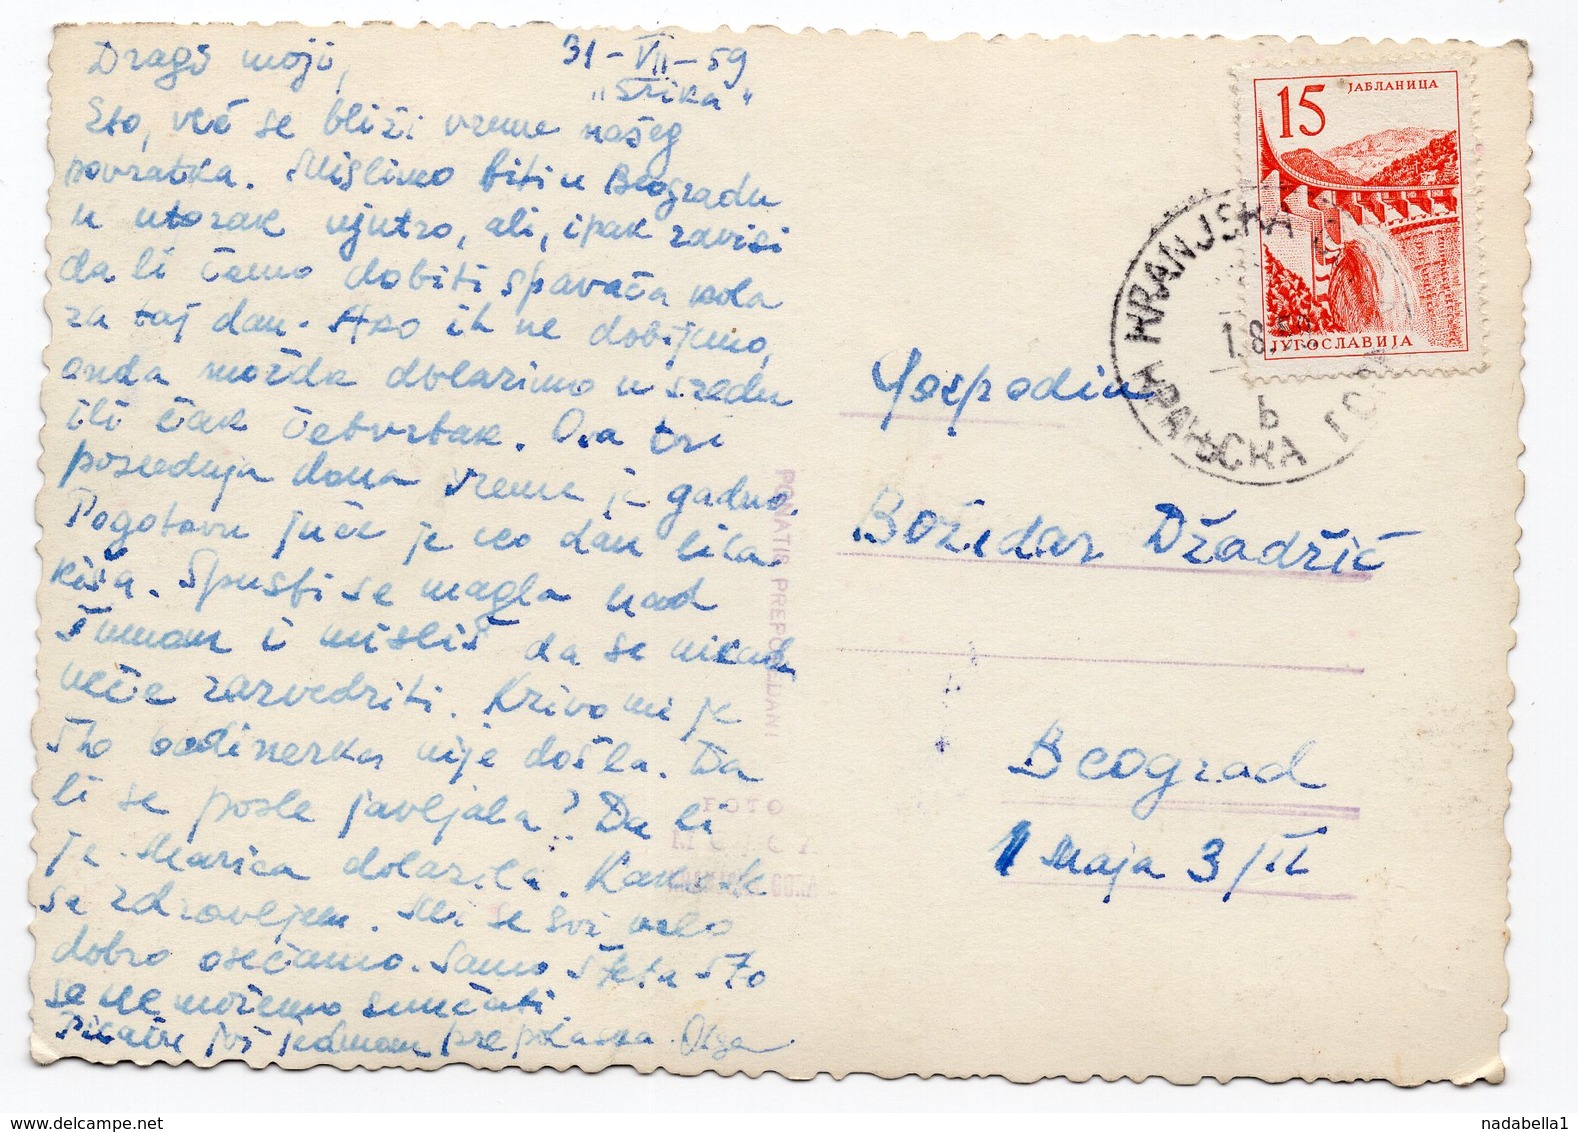 Dragi moji,
31-VII-59
"Erika"
Eto, već se bliži vreme našeg
povratka. Mislimo biti u Beogradu
u utorak ujutro, ali, ipak zavisi
da li ćemo dobiti spavaća kola
za taj dan. Ako ih ne dobijemo,
onda možda dolazimo u sredu
ili čak četvrtak. Ova tri
poslednja dana vreme je gadno.
Pogotovu juče je ceo dan lila
kiša. Spusti se magla nad
šumom i misliš da se nikad
neće razvedriti. Krivo mi je
što nije došla. Da
li se posle javljala? Da li
je Marica dolazila. Kako ste
sa zdravljem. Mi se svi vrlo
dobro osećamo. Samo šteta što
se ne možemo sunčati.
Pisaće još jedanom pre polaska. Olga
15
ЈАБЛАНИЦА
ЈУГОСЛАВИЈА
KRANJSKA
1.8.59
b
КРАЊСКА ГОРА
Gospodin
Božidar Džadžić
Beograd
1 Maja 3/II
PONATIS PREPOVEDAN!
FOTO
KRANJSKA GORA
nadabella1